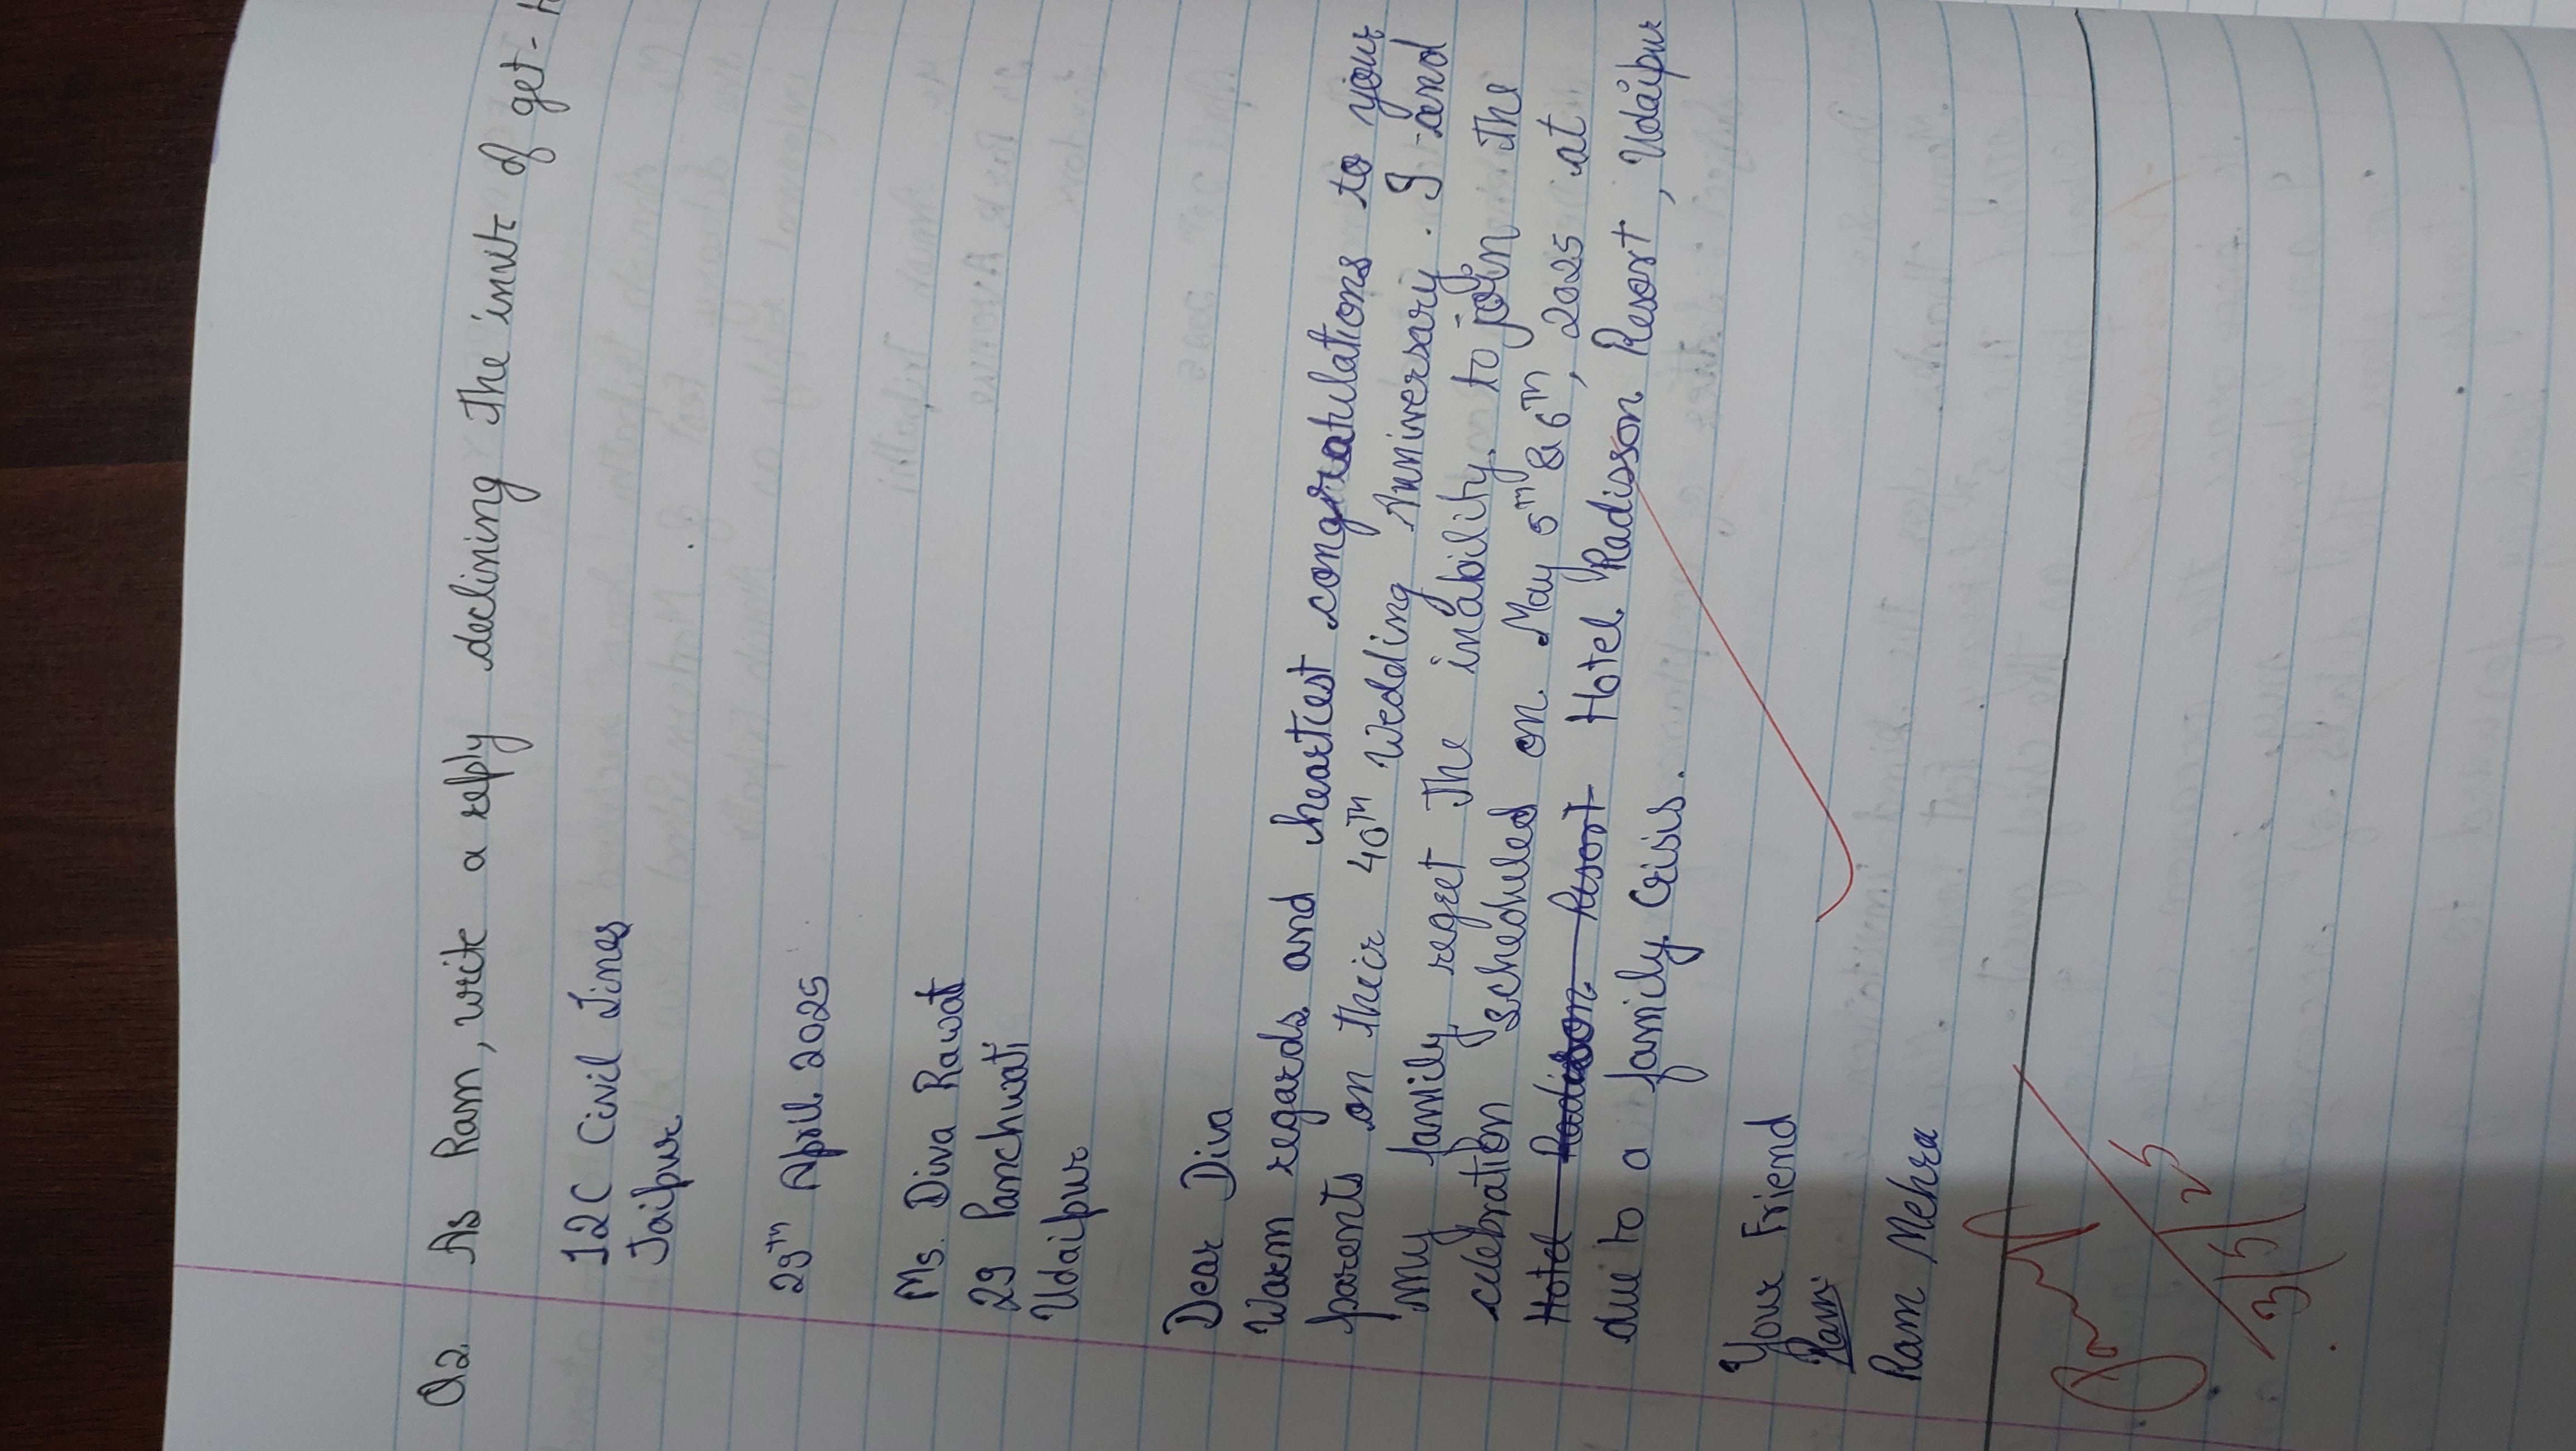 Q2. As Ram, write a reply declining the invit of get-
12C Civil Lines
Jaipur
29th April 2025
Ms. Diva Rawat
29 Panchwati
Udaipur
Dear Diva
Warm regards and heartiest congratulations to your
parents on their 40th Wedding Anniversary. I and
my family regret the inability to join the
celebration scheduled on May 5th & 6th, 2025 at
Hotel Radison Resort Hotel Radisson Resort, Udaipur
due to a family Crisis.
Your Friend
Ram
Ram Mehra
3/5/25